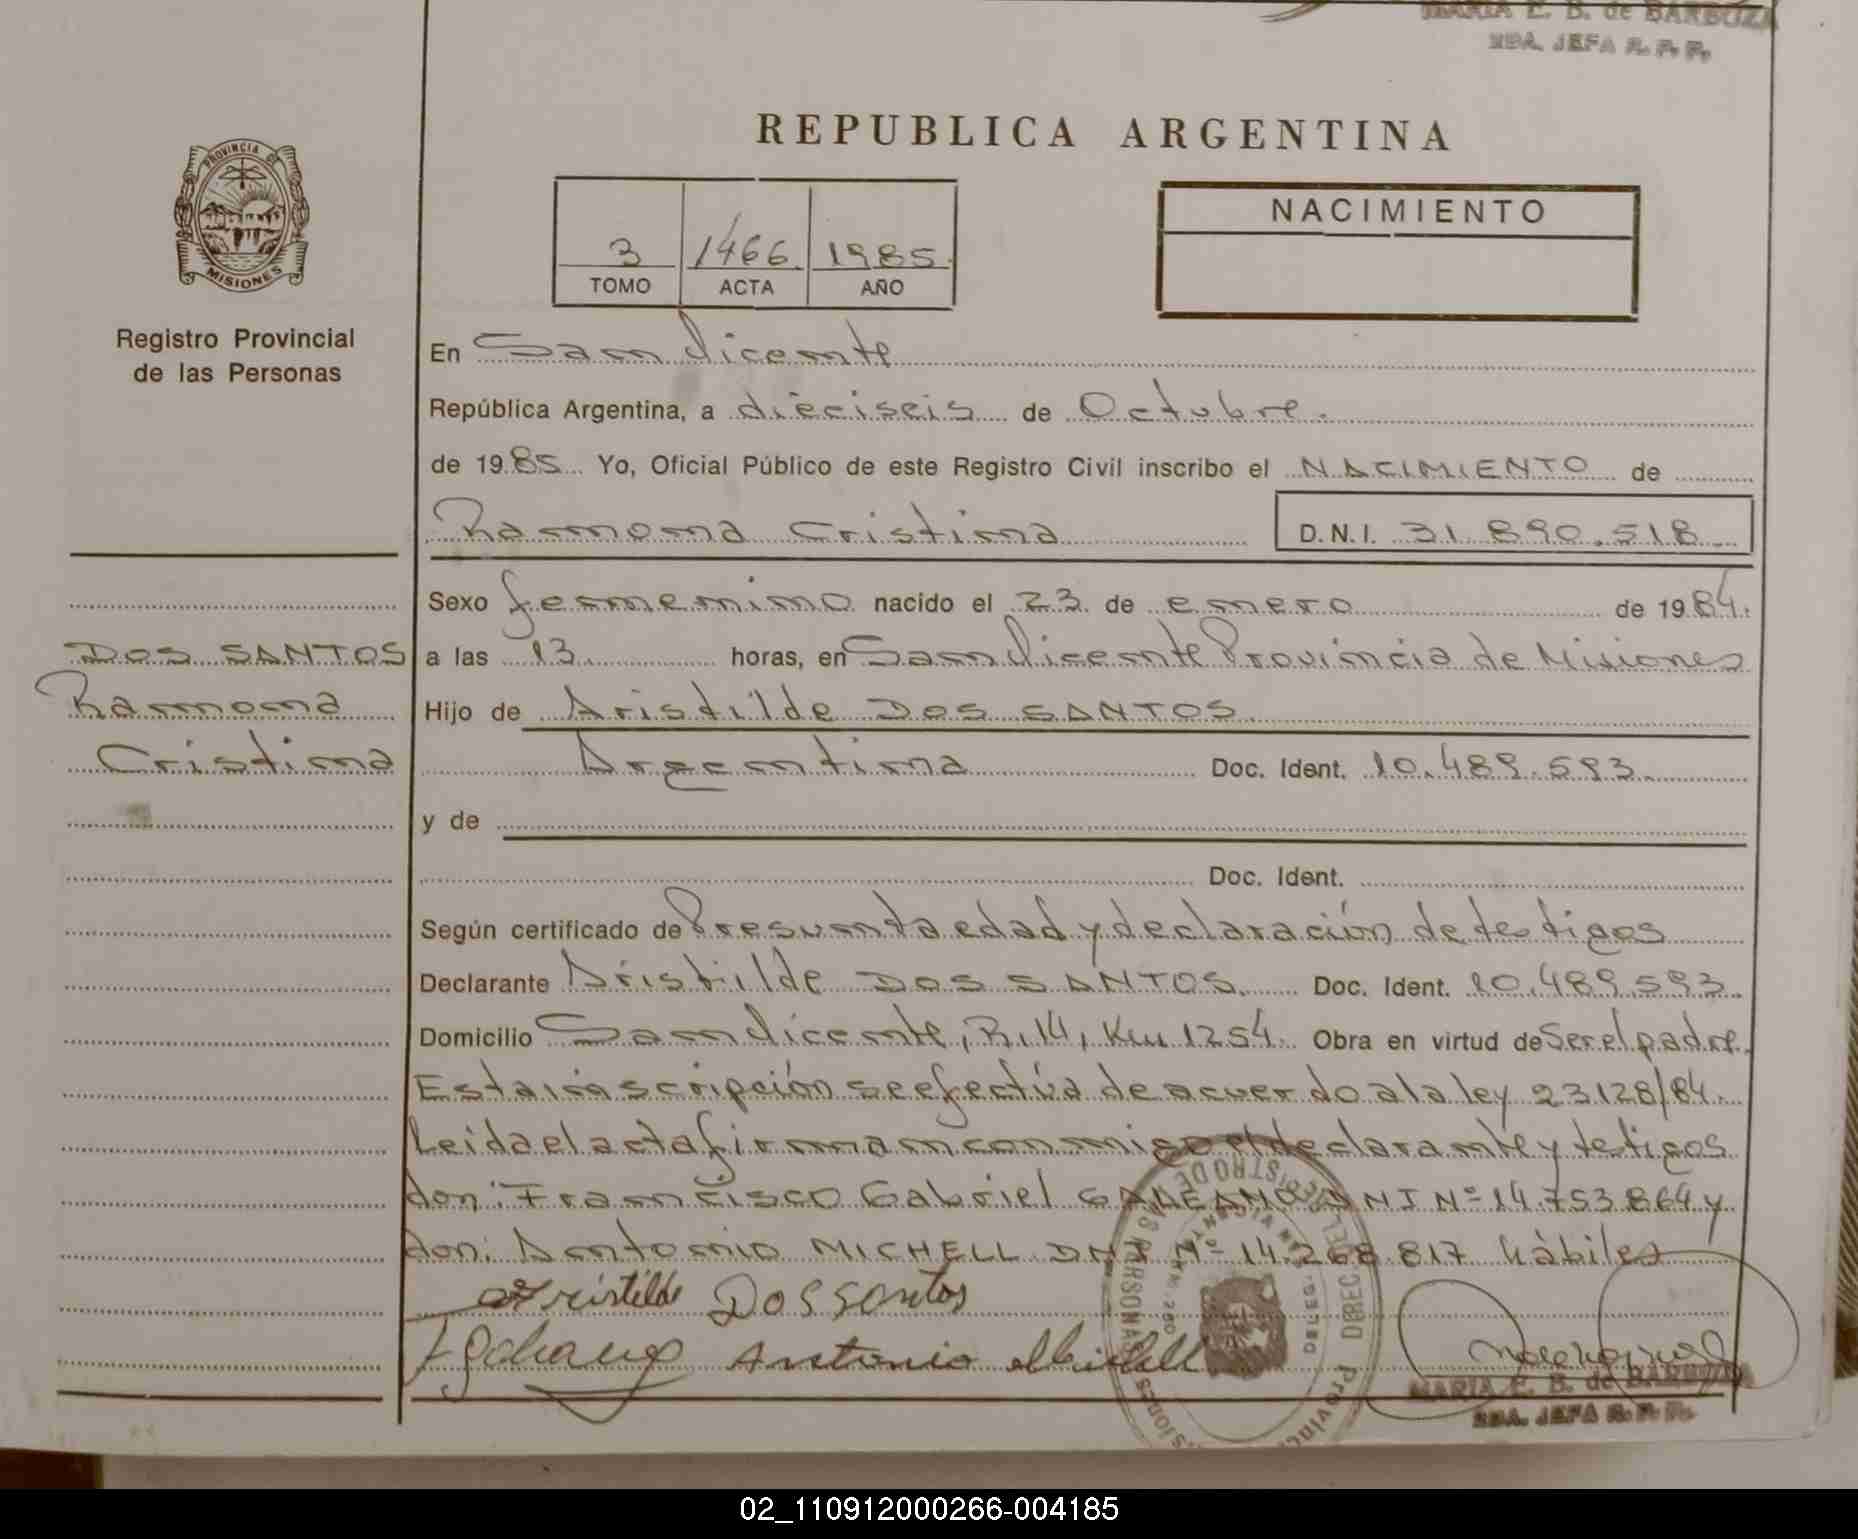 MARIA E. B. de BARBOZA
2DA. JEFA R. P. P.
REPUBLICA ARGENTINA
PROVINCIA DE
MISIONES
NACIMIENTO
3 1466 1985
TOMO ACTA AÑO
Registro Provincial
de las Personas
En San Vicente
República Argentina, a dieciseis de Octubre.
de 1985 Yo, Oficial Público de este Registro Civil inscribo el NACIMIENTO de
Ramona Cristina D.N.I. 31.890.518
Sexo femenino nacido el 23 de enero de 1984.
DOS SANTOS
Ramona
Cristina
a las 13 horas, en San Vicente Provincia de Misiones
Hijo de Aristilde DOS SANTOS
Argentina Doc. Ident. 10.489.593.
y de
Doc. Ident.
Según certificado de Presunta edad y declaración de testigos
Declarante Aristilde DOS SANTOS. Doc. Ident. 10.489.593.
Domicilio San Vicente, R.14, Km 1254. Obra en virtud de Ser el padre.
Esta inscripción se efectúa de acuerdo a la ley 23.128/84.
Leida el acta firman conmigo el declarante y testigos
don: Francisco Gabriel GALEANO DNI Nº 14.753.864 y
don: Antonio MICHELL DNI Nº 14.268.817 hàbiles
Aristilde Dos santos
Antonio Michell
MARIA E. B. de BARBOZA
2DA. JEFA R. P. P.
02_110912000266-004185